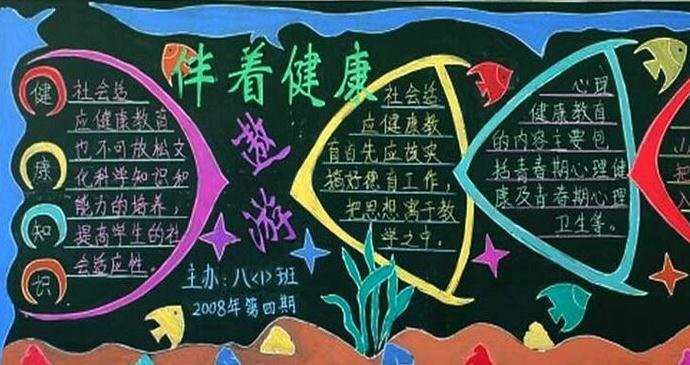 伴着健康
遨游
健
康
知
识
社会适
应健康教育
也不可放松文
化科学知识和
能力的培养，
提高学生的社
会适应性。
主办：八<1>班
2008年第四期
社会适
应健康教
育首先应该实
搞好德育工作，
把思想寓于教
学之中。
心理
健康教育
的内容主要包
括青春期心理健
康及青春期心理
卫生等。
把
入